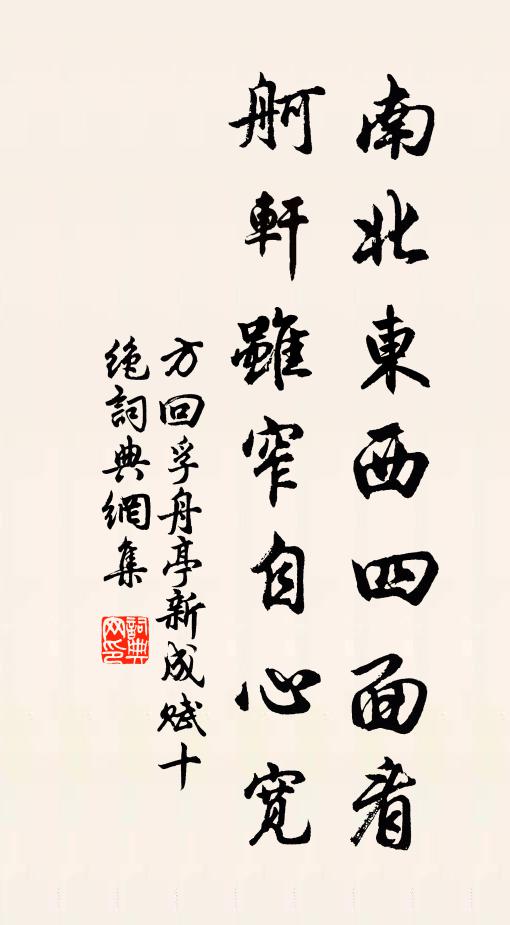 南北東西四面看
舸軒雖窄自心寬
方回孚舟亭新成賦十
絶詞典網集
詞典网印